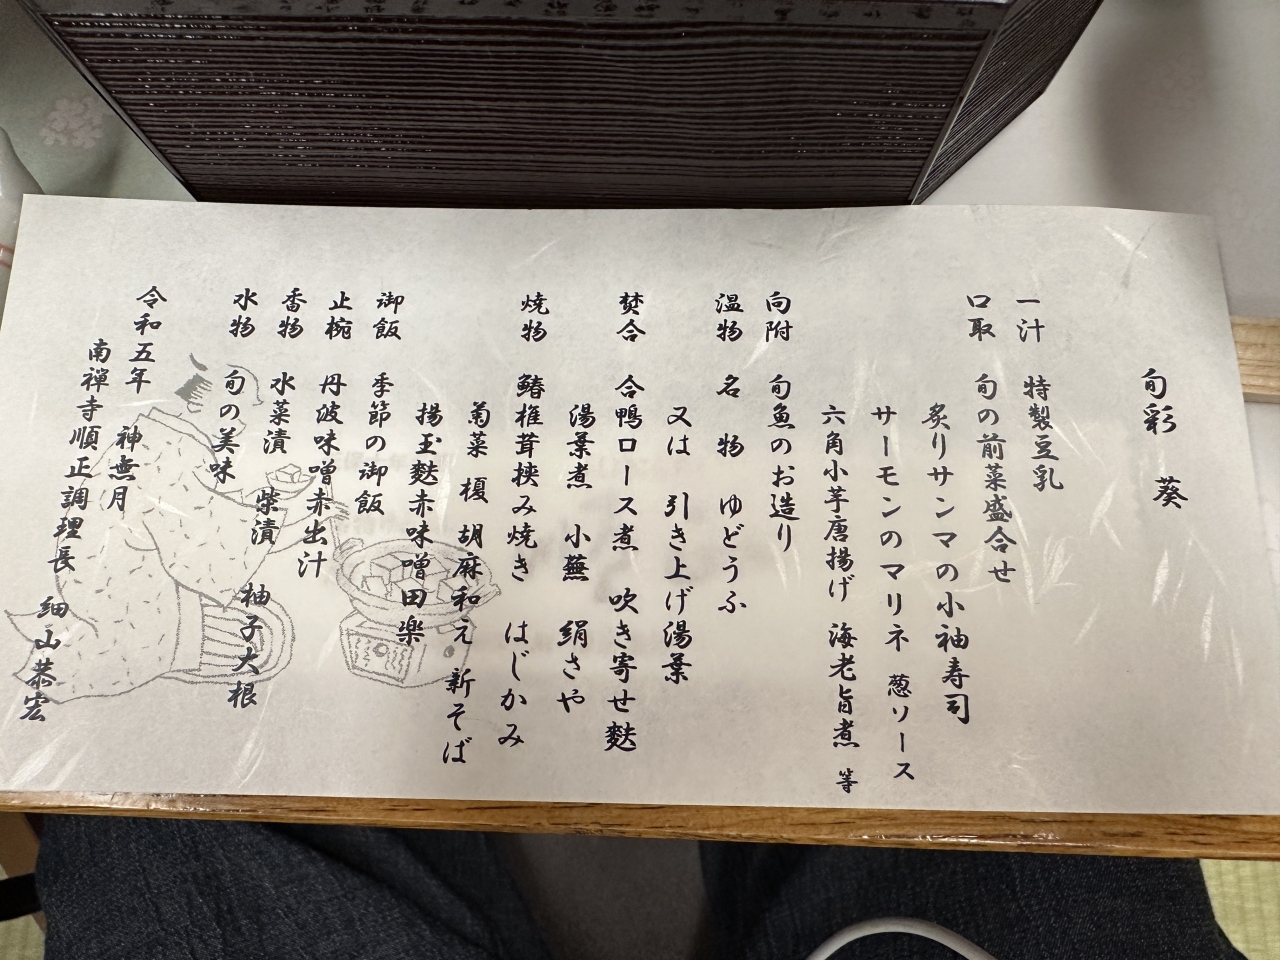 旬彩 葵
一汁 特製豆乳
口取 旬の前菜盛合せ
炙りサンマの小袖寿司
サーモンのマリネ 葱ソース
六角小芋唐揚げ 海老旨煮 等
向附 旬魚のお造り
温物 名物 ゆどうふ
又は 引き上げ湯葉
焚合 合鴨ロース煮 吹き寄せ麩
湯葉煮 小蕪 絹さや
焼物 鰆椎茸挟み焼き はじかみ
菊菜 榎 胡麻和え 新そば
揚玉麩赤味噌田楽
御飯 季節の御飯
止椀 丹波味噌赤出汁
香物 水菜漬 柴漬 柚子大根
水物 旬の美味
令和五年 神無月
南禅寺順正調理長 細山恭宏